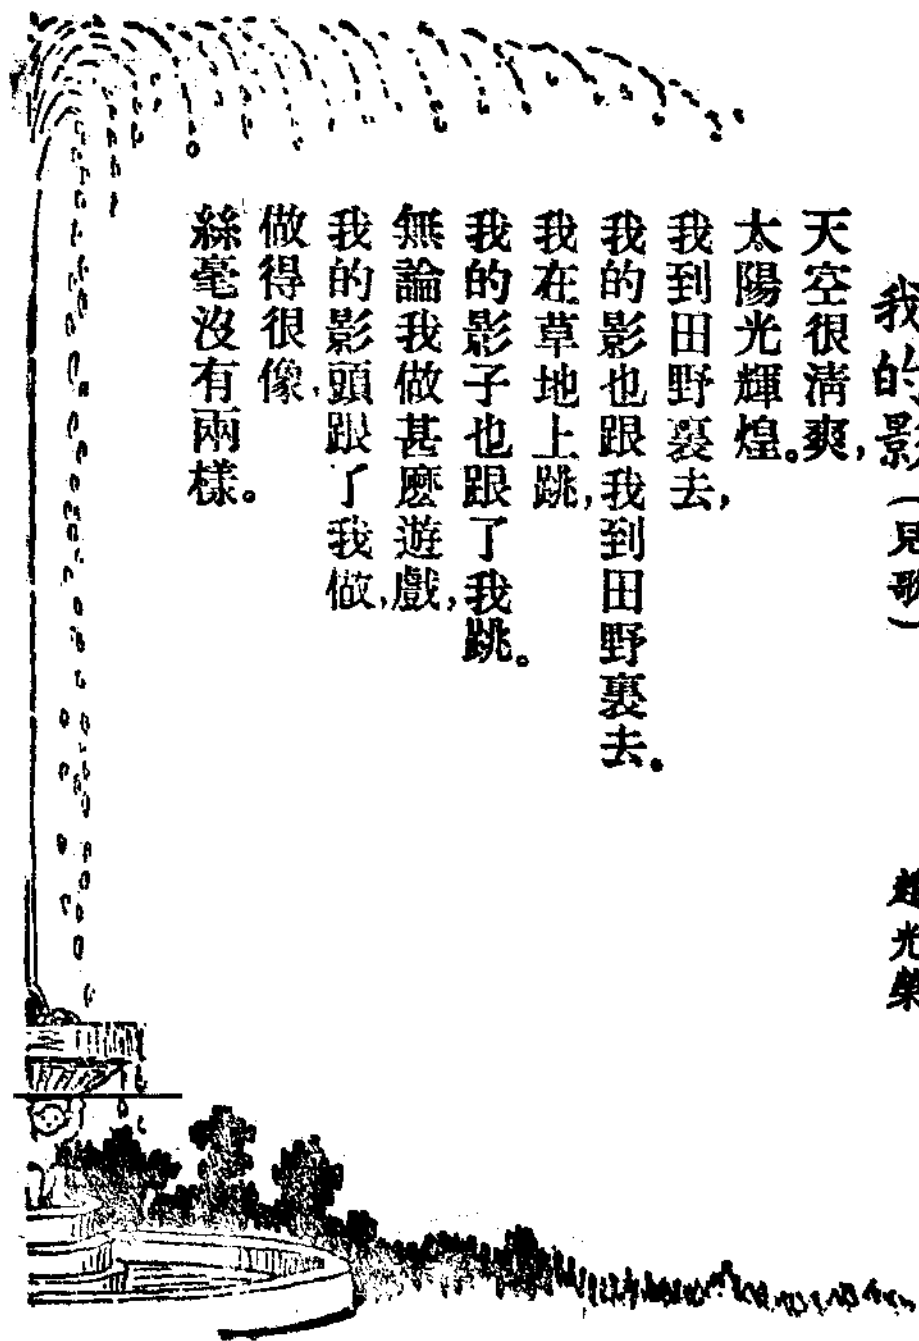 我的影(兒歌)
趙光榮
天空很清爽,
太陽光輝煌。
我到田野裏去,
我的影也跟我到田野裏去。
我在草地上跳,
我的影子也跟了我跳。
無論我做甚麽遊戲,
我的影頭跟了我做,
做得很像,
絲毫沒有兩樣。